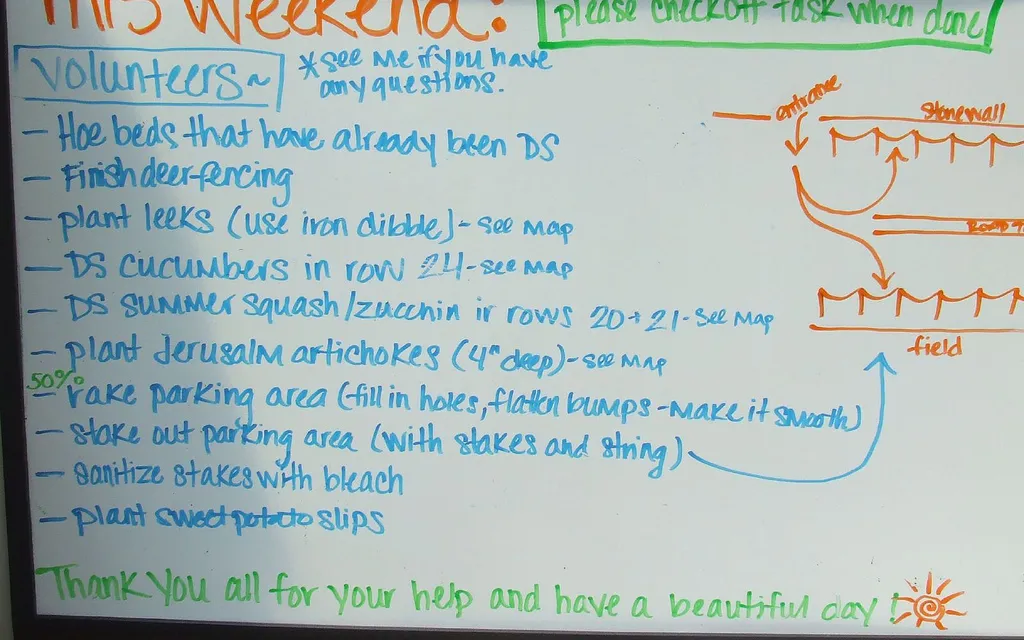 This Weekend:
please check off task when done
Volunteers~
*see me if you have
any questions.
- Hoe beds that have already been DS
- Finish deer fencing
- plant leeks (use iron dibble) - see Map
- DS cucumbers in row 24 - see Map
- DS summer squash/zucchin in rows 20 + 21 - See Map
- plant Jerusalm artichokes (4" deep) - see Map
50%
- rake parking area (fill in holes, flatten bumps - make it smooth)
- stake out parking area (with stakes and string)
- sanitize stakes with bleach
- plant sweet potato slips
Thank You all for your help and have a beautiful day!
entrance
Stonewall
field